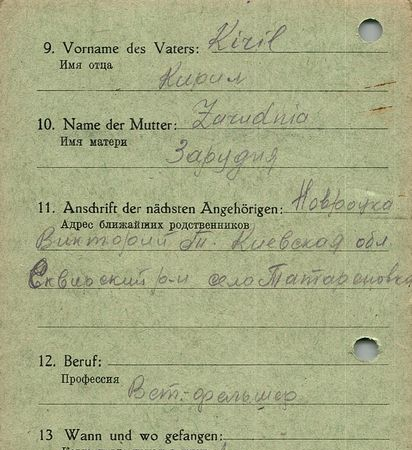 9. Vorname des Vaters: Kiril
Имя отца
Кирил
10. Name der Mutter: Zarudnia
Имя матери
Зарудня
11. Anschrift der nächsten Angehörigen:
Адрес ближайших родственников
Виктория Киевская обл
Сквирский р-н село Татариновка
12. Beruf:
Профессия
Вет. фельшер
13 Wann und wo gefangen: